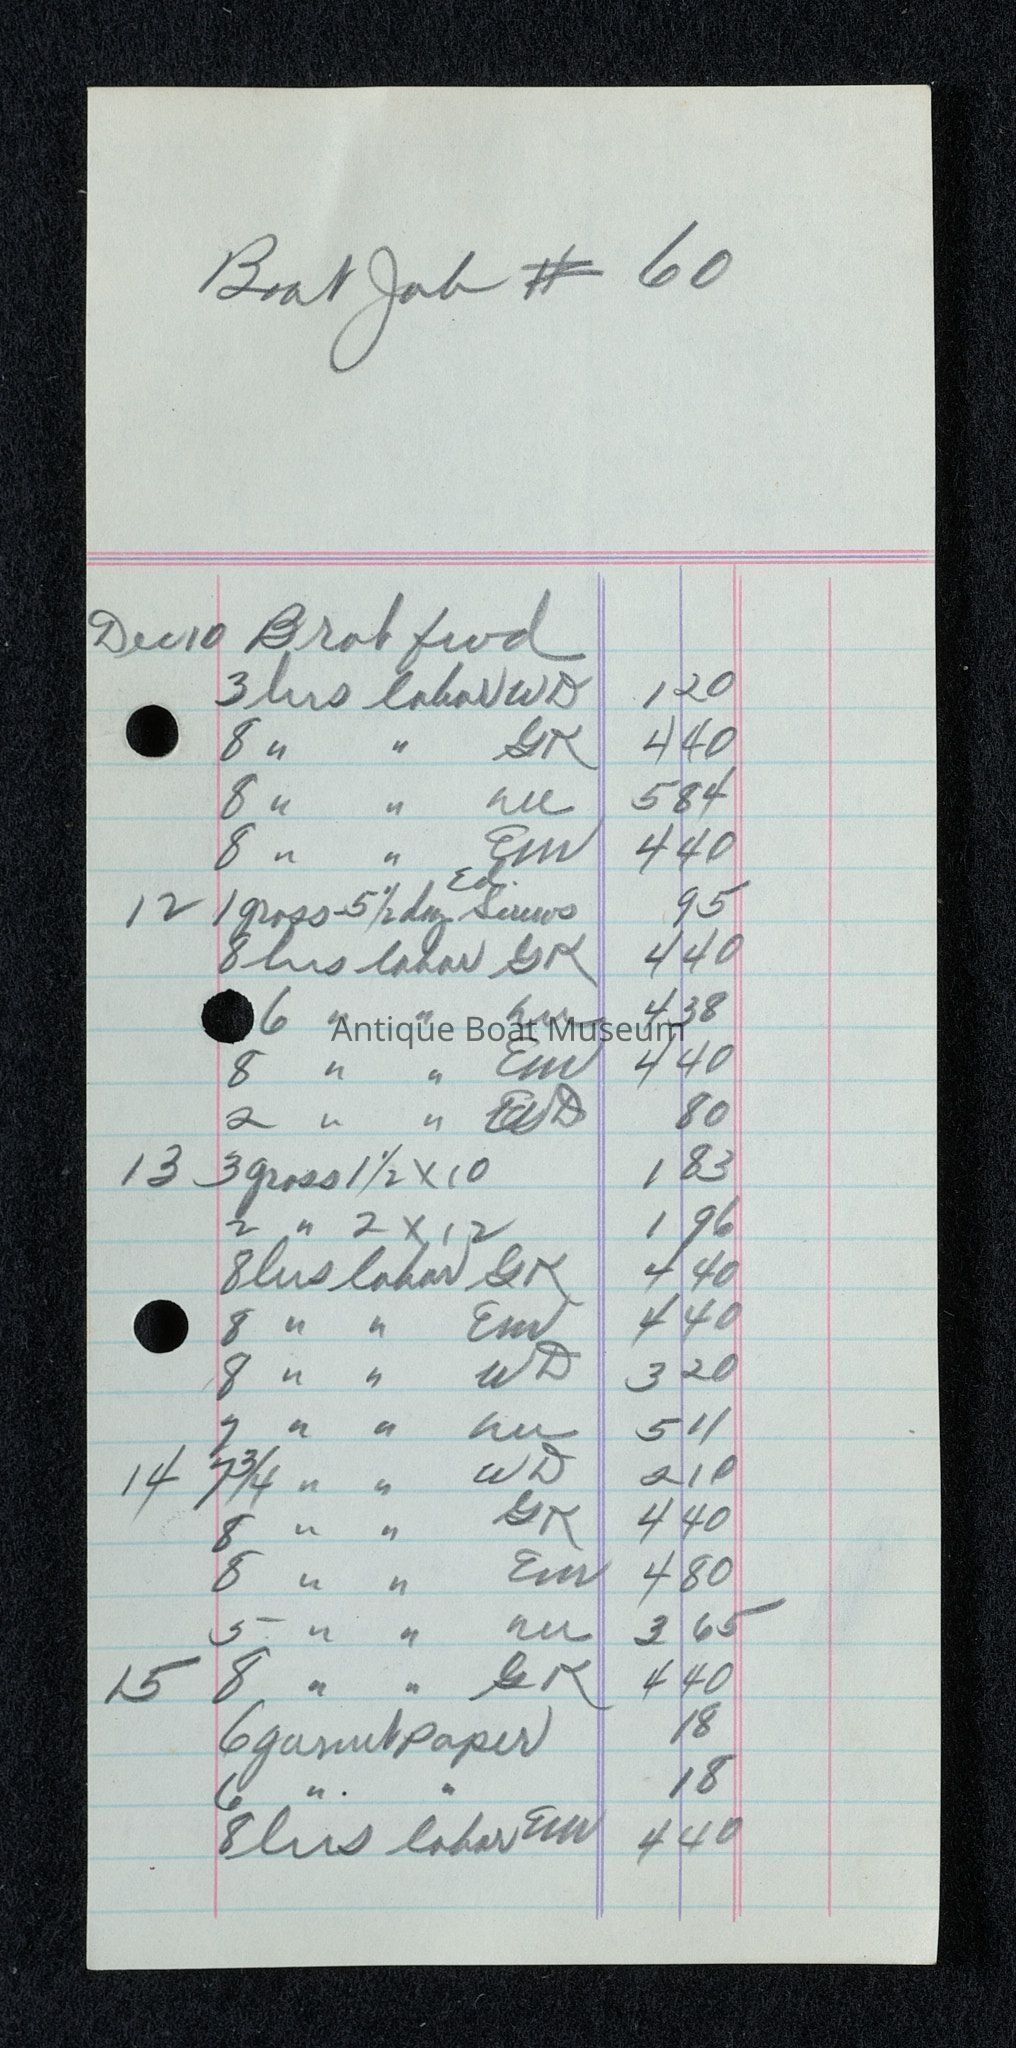 Boat Job # 60
Dec 10 Brot fwd
3 hrs labor WD 1 20
8 " " GK 4 40
8 " " 5 84
8 " " EM 4 40
Ed.
12 1 gross - 5 1/2 doz Screws 95
8 hrs labor GK 4 40
6 " " 4 38
Antique Boat Museum
8 " " EM 4 40
2 " " WD 80
13 3 gross 1 1/2 X 10 1 83
2 " 2 X 12 1 96
8 hrs labor GK 4 40
8 " " EM 4 40
8 " " WD 3 20
7 " " 5 11
14 7 3/4 " " WD 2 10
8 " " GK 4 40
8 " " EM 4 80
5 " " 3 65
15 8 " " GK 4 40
6 garnet paper 18
6 " " 18
8 hrs labor EM 4 40